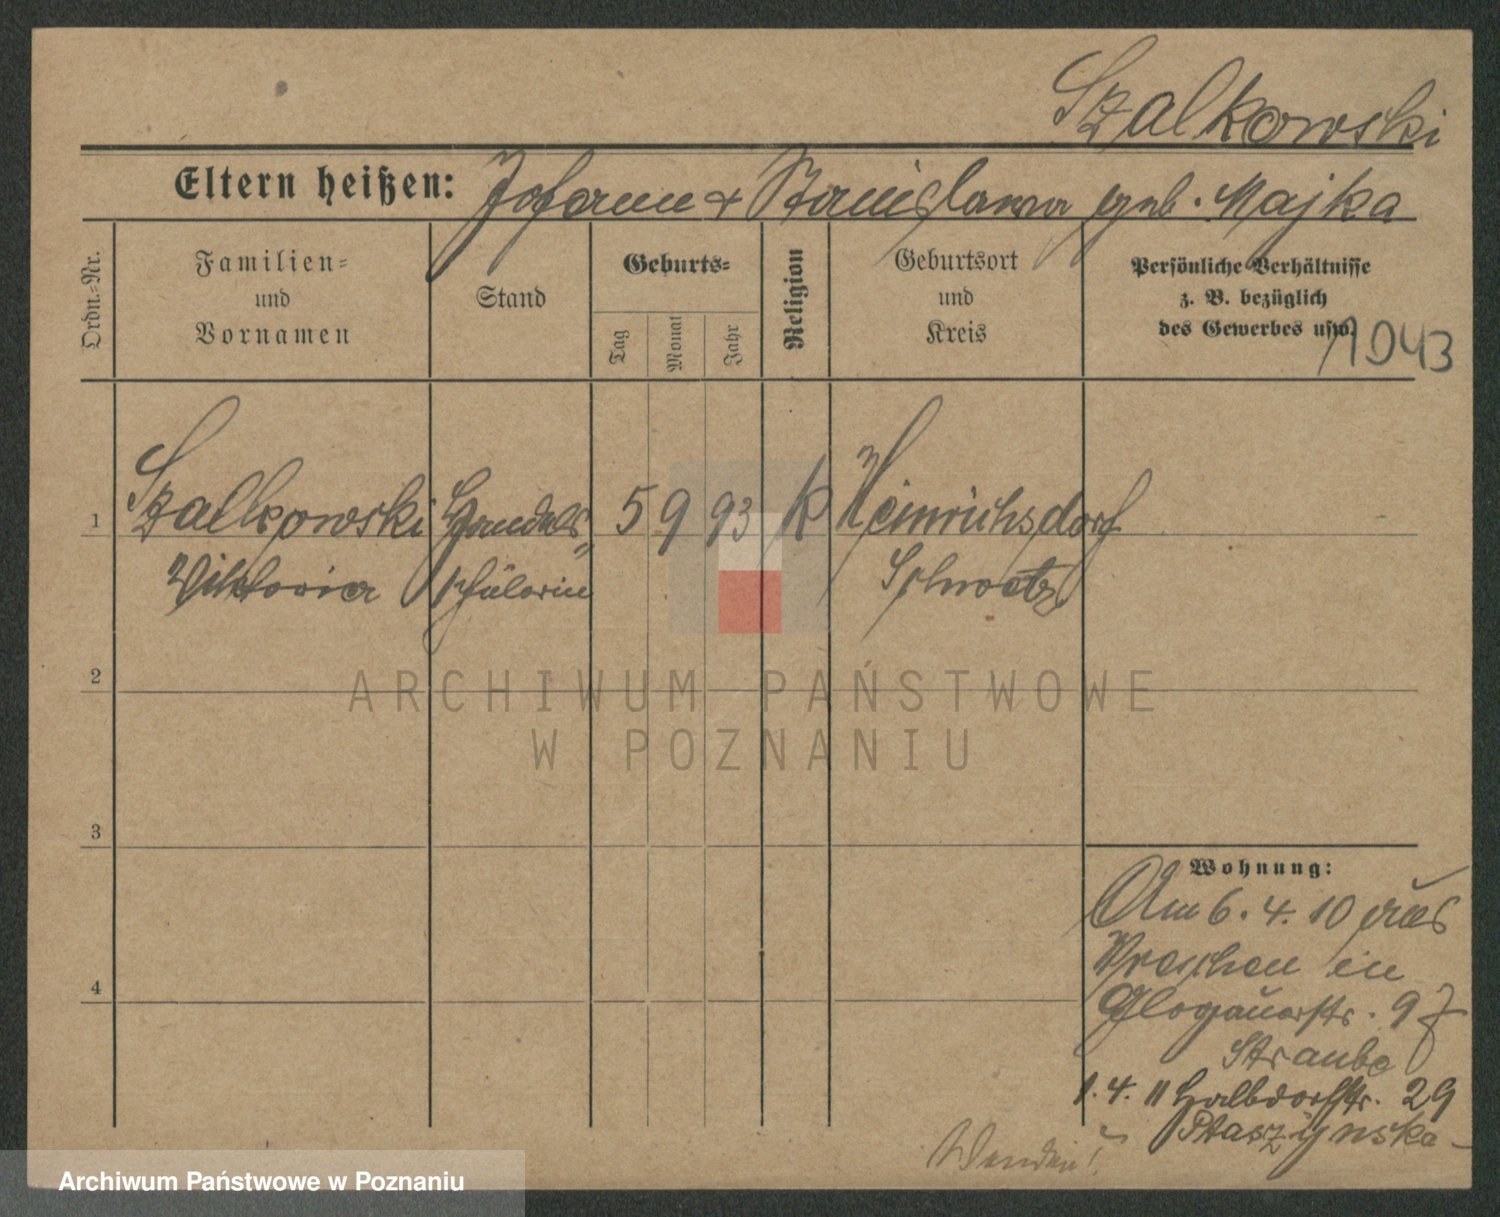 Szalkowski
Eltern heißen: Johann + Stanislawa geb. Majka
Ordn.-Nr.
Familien-
und
Vornamen
Stand
Geburts-
Tag
Monat
Jahr
Religion
Geburtsort
und
Kreis
Persönliche Verhältnisse
z. B. bezüglich
des Gewerbes usw.
1043
1 Szalkowski Handels- 5 9 93 k Heinrichsdorf
Viktoria schülerin Schwetz
2
3
4
Wohnung:
Am 6. 4. 10 aus
Wreschen in
Glogauerstr. 97
Straube
1. 4. 11 Halbdorfstr. 29
Ptaszynska
Wenden!
ARCHIWUM PAŃSTWOWE
W POZNANIU
Archiwum Państwowe w Poznaniu